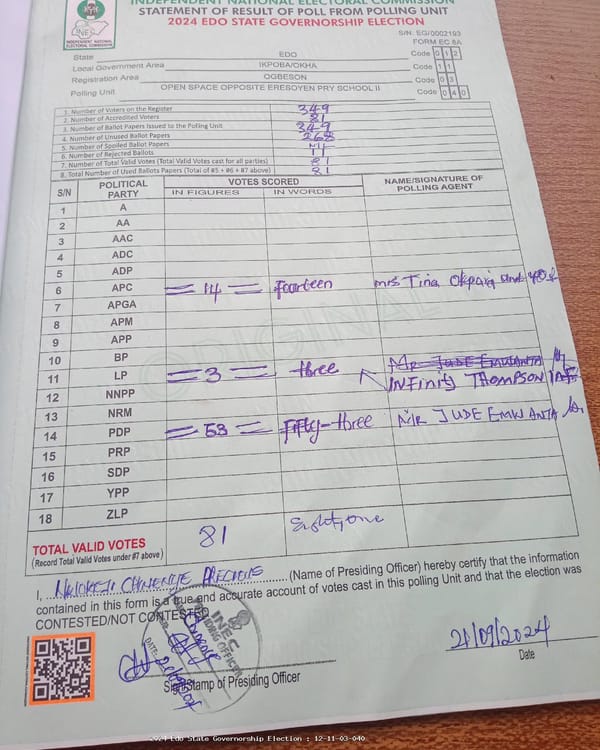 INDEPENDENT NATIONAL ELECTORAL COMMISSION
STATEMENT OF RESULT OF POLL FROM POLLING UNIT
2024 EDO STATE GOVERNORSHIP ELECTION
INEC
INDEPENDENT NATIONAL ELECTORAL COMMISSION
S/N: EG/0002193
FORM EC 8A
State EDO Code 012
Local Government Area IKPOBA/OKHA Code 11
Registration Area OGBESON Code 03
Polling Unit OPEN SPACE OPPOSITE ERESOYEN PRY SCHOOL II Code 040
1. Number of Voters on the Register 349
2. Number of Accredited Voters 81
3. Number of Ballot Papers Issued to the Polling Unit 349
4. Number of Unused Ballot Papers 268
5. Number of Spoiled Ballot Papers
6. Number of Rejected Ballots
7. Number of Total Valid Votes (Total Valid Votes cast for all parties) 81
8. Total Number of Used Ballots Papers (Total of #5 + #6 + #7 above) 81
S/N POLITICAL PARTY VOTES SCORED NAME/SIGNATURE OF POLLING AGENT
IN FIGURES IN WORDS
1 A
2 AA
3 AAC
4 ADC
5 ADP
6 APC = 14 = fourteen mrs Tina
7 APGA
8 APM
9 APP
10 BP
MR JUDE EMWANTA
11 LP = 3 = three INFINITY THOMPSON
12 NNPP
13 NRM
14 PDP = 53 = fifty-three MR JUDE EMWANTA
15 PRP
16 SDP
17 YPP
18 ZLP
ORIGINAL
TOTAL VALID VOTES 81 Eighty one
(Record Total Valid Votes under #7 above)
I, PRECIOUS (Name of Presiding Officer) hereby certify that the information
contained in this form is a true and accurate account of votes cast in this polling Unit and that the election was
CONTESTED/NOT CONTESTED
INEC
PRESIDING OFFICER
DATE:
21/09/2024
Sign/Stamp of Presiding Officer
Date
2024 Edo State Governorship Election : 12-11-03-040